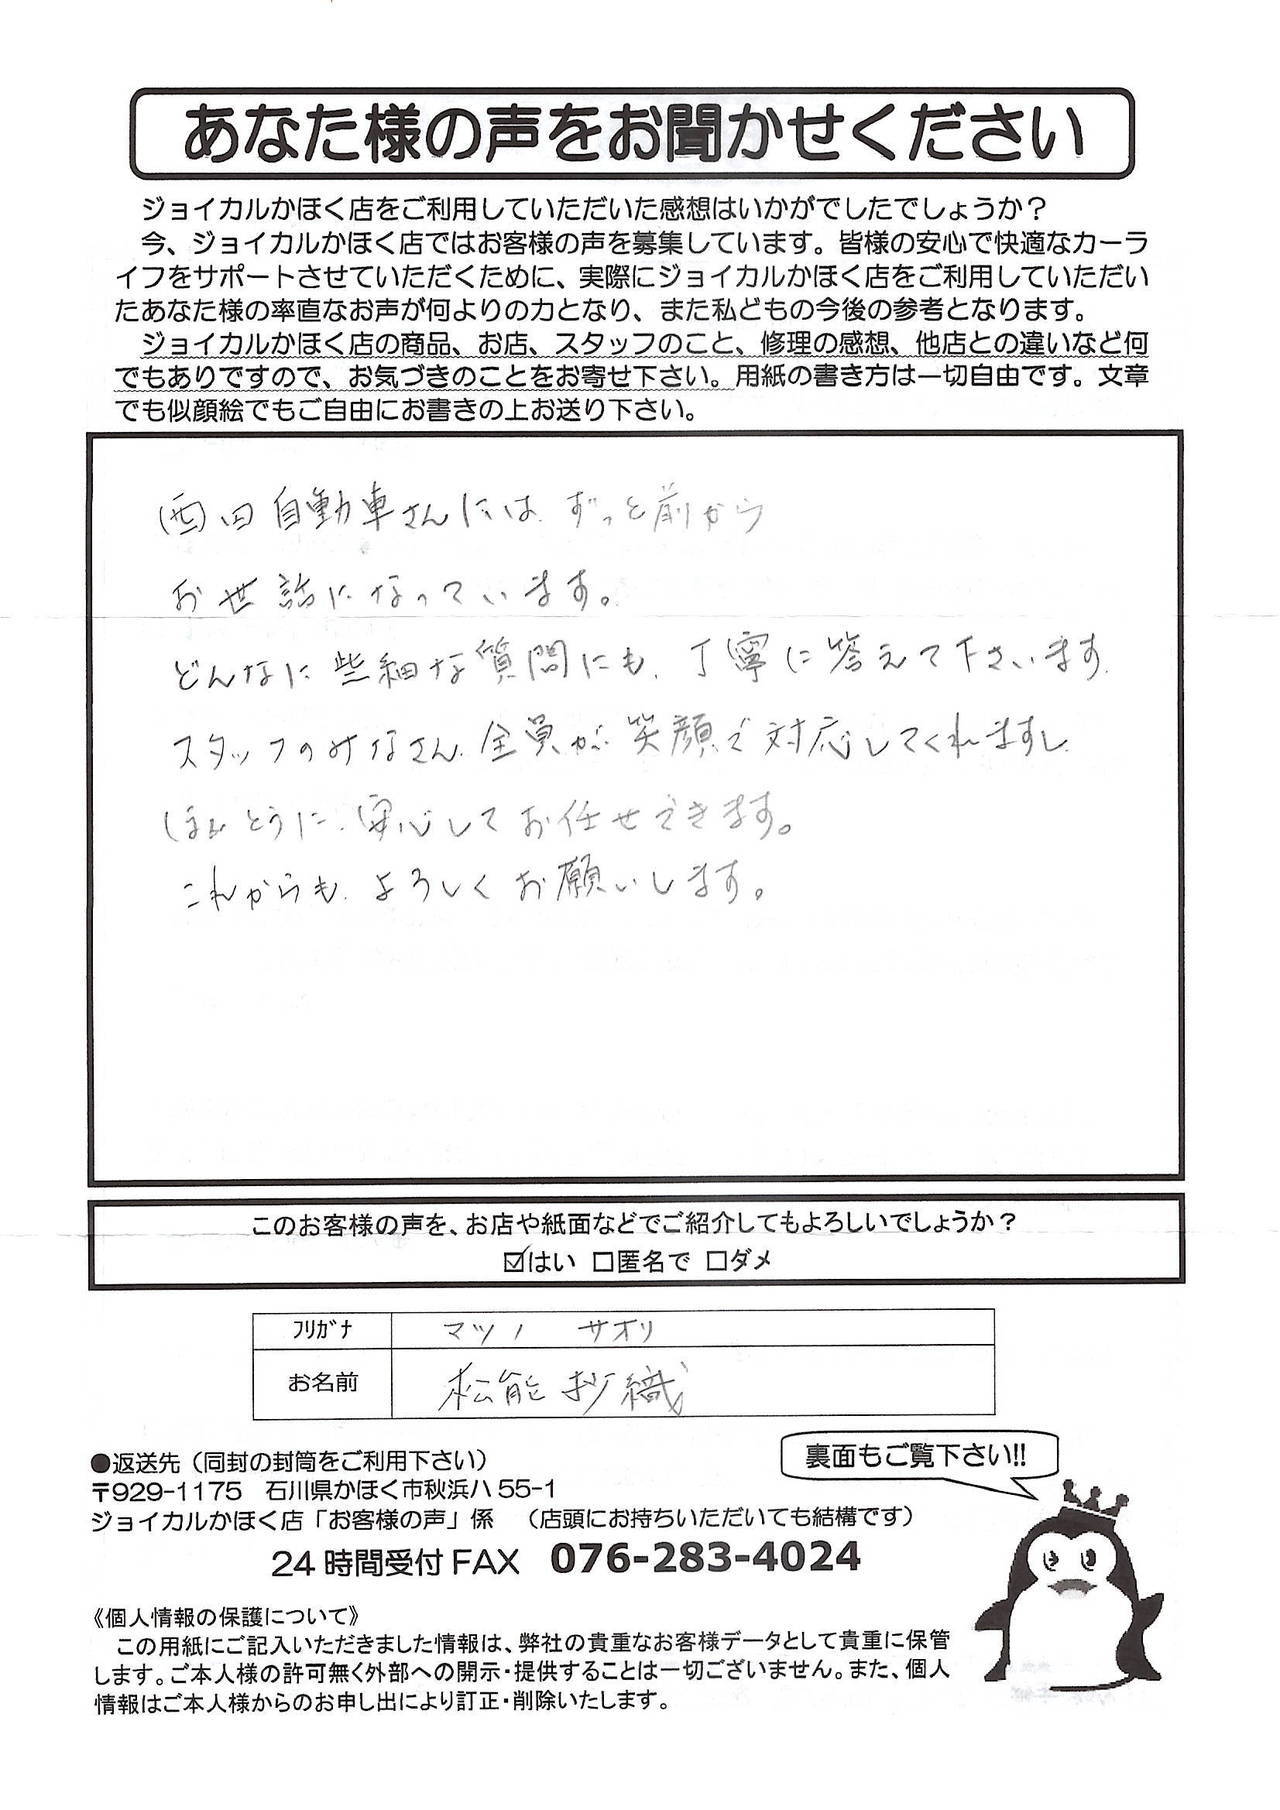 あなた様の声をお聞かせください
ジョイカルかほく店をご利用していただいた感想はいかがでしたでしょうか？
今、ジョイカルかほく店ではお客様の声を募集しています。皆様の安心で快適なカーラ
イフをサポートさせていただくために、実際にジョイカルかほく店をご利用していただい
たあなた様の率直なお声が何よりの力となり、また私どもの今後の参考となります。
ジョイカルかほく店の商品、お店、スタッフのこと、修理の感想、他店との違いなど何
でもありですので、お気づきのことをお寄せ下さい。用紙の書き方は一切自由です。文章
でも似顔絵でもご自由にお書きの上お送り下さい。
西田自動車さんには、ずっと前から
お世話になっています。
どんなに些細な質問にも、丁寧に答えて下さいます。
スタッフのみなさん、全員が、笑顔で対応してくれますし、
ほんとうに、安心してお任せできます。
これからも、よろしくお願いします。
このお客様の声を、お店や紙面などでご紹介してもよろしいでしょうか？
☑はい □匿名で □ダメ
フリガナ マツノ サオリ
お名前 松能 抄織
裏面もご覧下さい!!
●返送先（同封の封筒をご利用下さい）
〒929-1175 石川県かほく市秋浜ハ55-1
ジョイカルかほく店「お客様の声」係 （店頭にお持ちいただいても結構です）
24時間受付FAX 076-283-4024
《個人情報の保護について》
この用紙にご記入いただきました情報は、弊社の貴重なお客様データとして貴重に保管
します。ご本人様の許可無く外部への開示・提供することは一切ございません。また、個人
情報はご本人様からのお申し出により訂正・削除いたします。